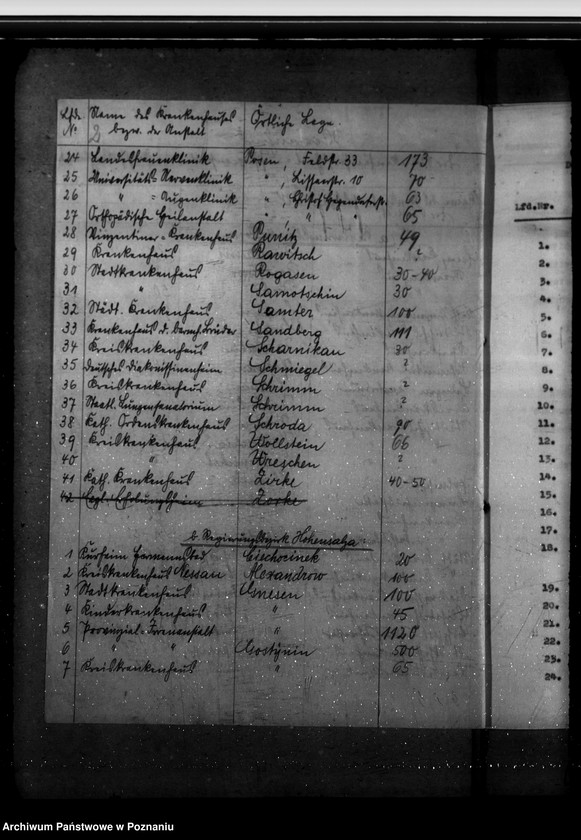 Lfde. Name des Krankenhauses Örtliche Lage.
Nr. 2 bezw. der Anstalt
24 Landesfrauenklinik Posen, Feldstr. 33 173
25 Universitäts Nervenklinik " , Lissaerstr. 10 70
26 " = Augenklinik " , 63
27 Orthopädische Heilanstalt " " " 65
28 Vinzentiner = Krankenhaus Punitz 49
29 Krankenhaus Rawitsch ?
30 Stadtkrankenhaus Rogasen 30-40
31 " Samotschin 30
32 Städt. Krankenhaus Samter 100
33 Krankenhaus d. Barmh. Brüder Sandberg 111
34 Kreiskrankenhaus Scharnikau 30
35 Deutsches Diakonissenheim Schmiegel ?
36 Kreiskrankenhaus Schrimm ?
37 Staatl. Lungensanatorium Schrimm ?
38 Kath. Ordenskrankenhaus Schroda 90
39 Kreiskrankenhaus Wollstein 66
40 " Wreschen ?
41 Kath. Krankenhaus Zirke 40-50
42 Erholungsheim
b. Regierungsbezirk Hohensalza
1 Kurheim Hermannsbad Ciechocinek 20
2 Kreiskrankenhaus Nessau Alexandrow 100
3 Stadtkrankenhaus Gnesen 100
4 Kinderkrankenhaus " 45
5 Provinzial-Irrenanstalt " 1120
6 " " Gostynin 500
7 Kreiskrankenhaus " 65
Lfd.Nr.
1.
2.
3.
4.
5.
6.
7.
8.
9.
10.
11.
12.
13.
14.
15.
16.
17.
18.
19.
20.
21.
22.
23.
24.
Archiwum Państwowe w Poznaniu